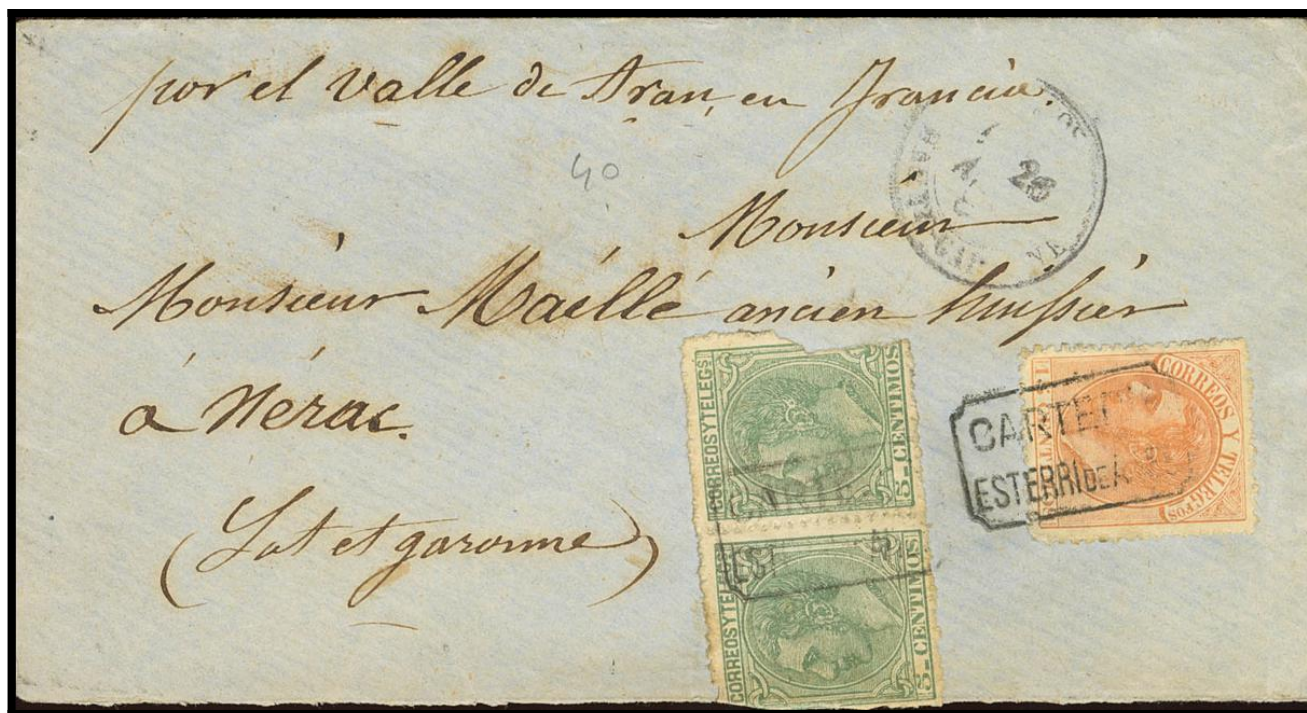 por el Valle de Aran, en Francia.
40
26
Monsieur
Monsieur Maëllé ancien huissier
à Nérac.
(Lot et garonne)
CORREOS Y TELEGS
5_CENTIMOS
CORREOS Y TELEGS
5_CENTIMOS
CORREOS Y TELEGFOS
ESTERRI DE